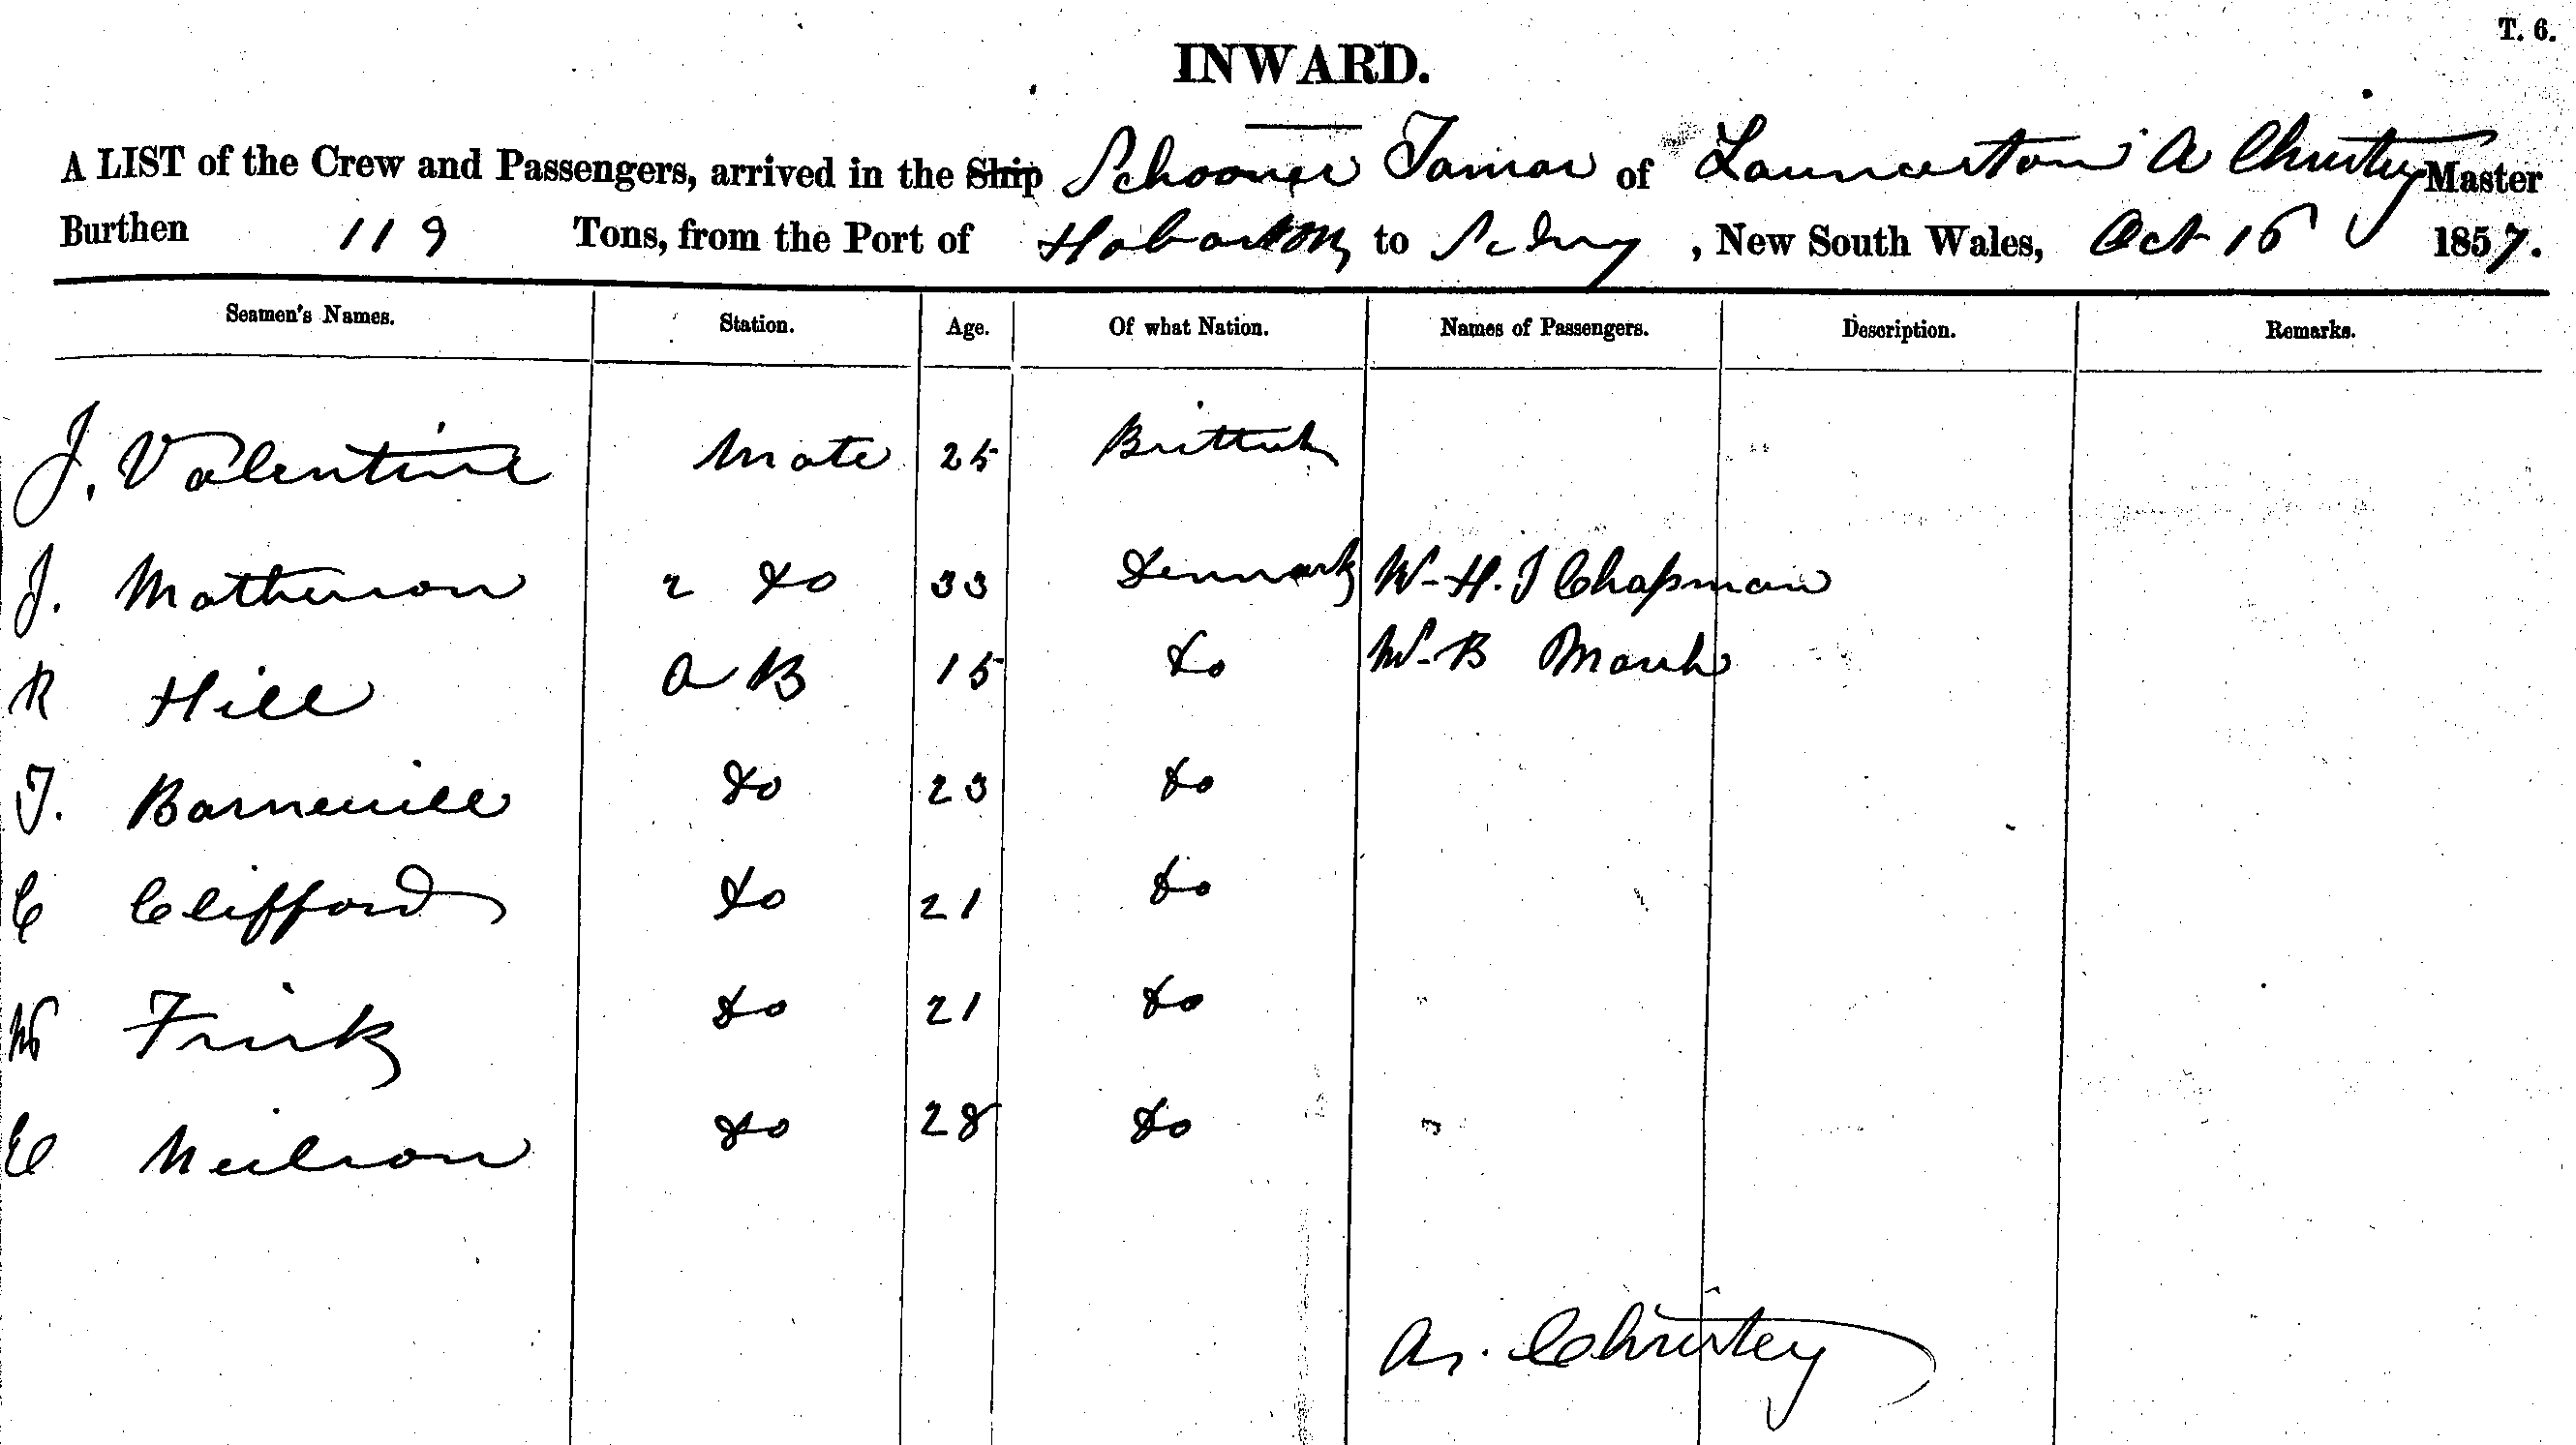 T. 6.
INWARD.
A LIST of the Crew and Passengers, arrived in the Ship Schooner Tamar of Launceston A Christey Master
Burthen 119 Tons, from the Port of Hobarton to Sydney, New South Wales, Oct 16 1857.
Seamen's Names. Station. Age. Of what Nation. Names of Passengers. Description. Remarks.
J. Valentine Mate 25 Brittish
J. Matheson 2 Do 33 Denmark W. H. J Chapman
R Hill A B 15 Do W. B Marsh
T. Barnewill Do 23 Do
C Clifford Do 21 Do
W Frisk Do 21 Do
C Neilson Do 28 Do
A. Christey